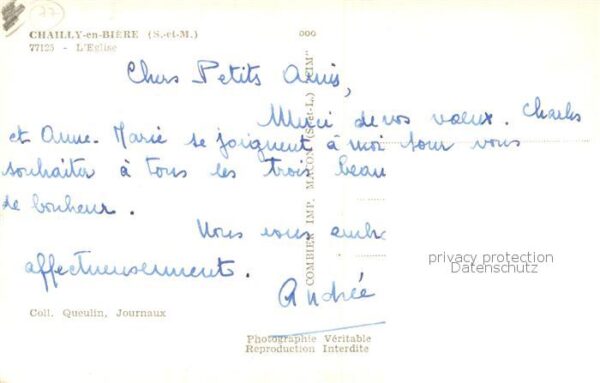 77
CHAILLY-en-BIÈRE (S.-et-M.)
77125 - L'Eglise
Chers Petits Amis,
Merci de vos vœux. Charles
et Anne-Marie se joignent à moi pour vous
souhaiter à tous les trois beau
de bonheur.
Nous vous emb
affectueusement.
Andrée
COMBIER IMP. MACON (S.-et-L.) "CIM"
privacy protection
Datenschutz
Coll. Queulin, Journaux
Photographie Véritable
Reproduction Interdite